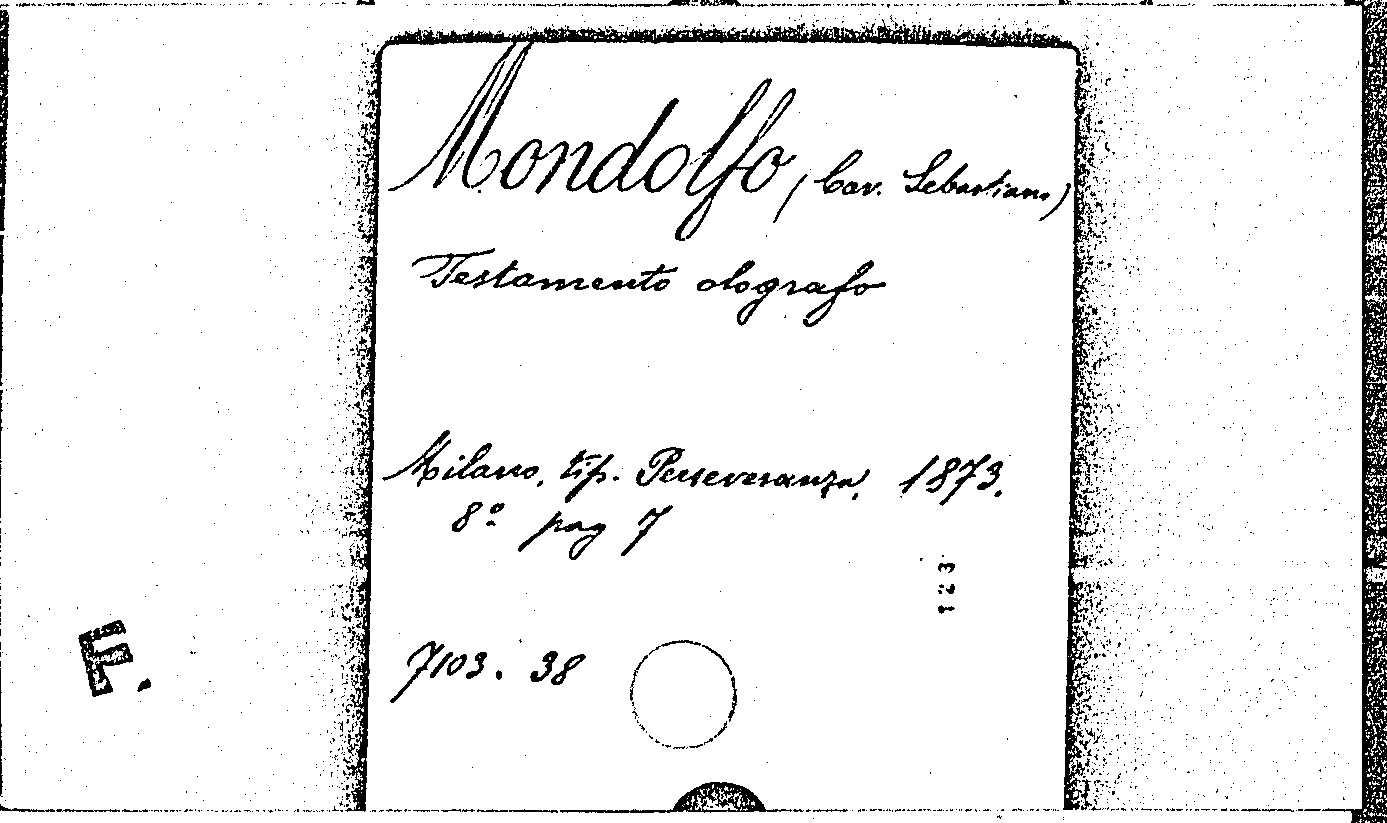 Mondolfo, (Cav. Sebastiano)
Testamento olografo
Milano, tip. Perseveranza, 1873.
8º pag 7
123
7103. 38
F.